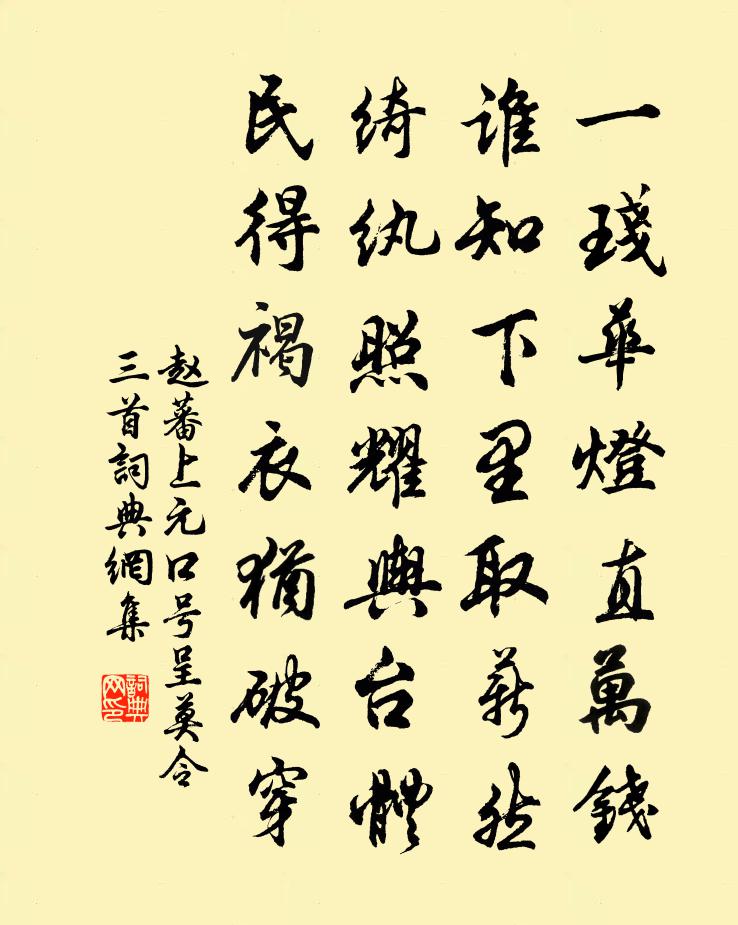 一琖華燈直萬錢
誰知下里取薪然
綺紈照耀輿台體
民得褐衣猶破穿
赵蕃上元口号呈莫令
三首詞典網集
詞典网印